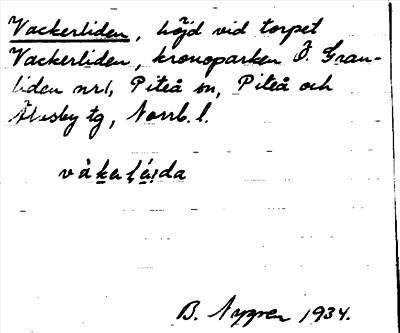 Vackerliden, höjd vid torpet
Vackerliden, kronoparken Ö. Gran-
liden nr1, Piteå sn, Piteå och
Älvsby tg, Norrb. l.
B. Nygren 1934.